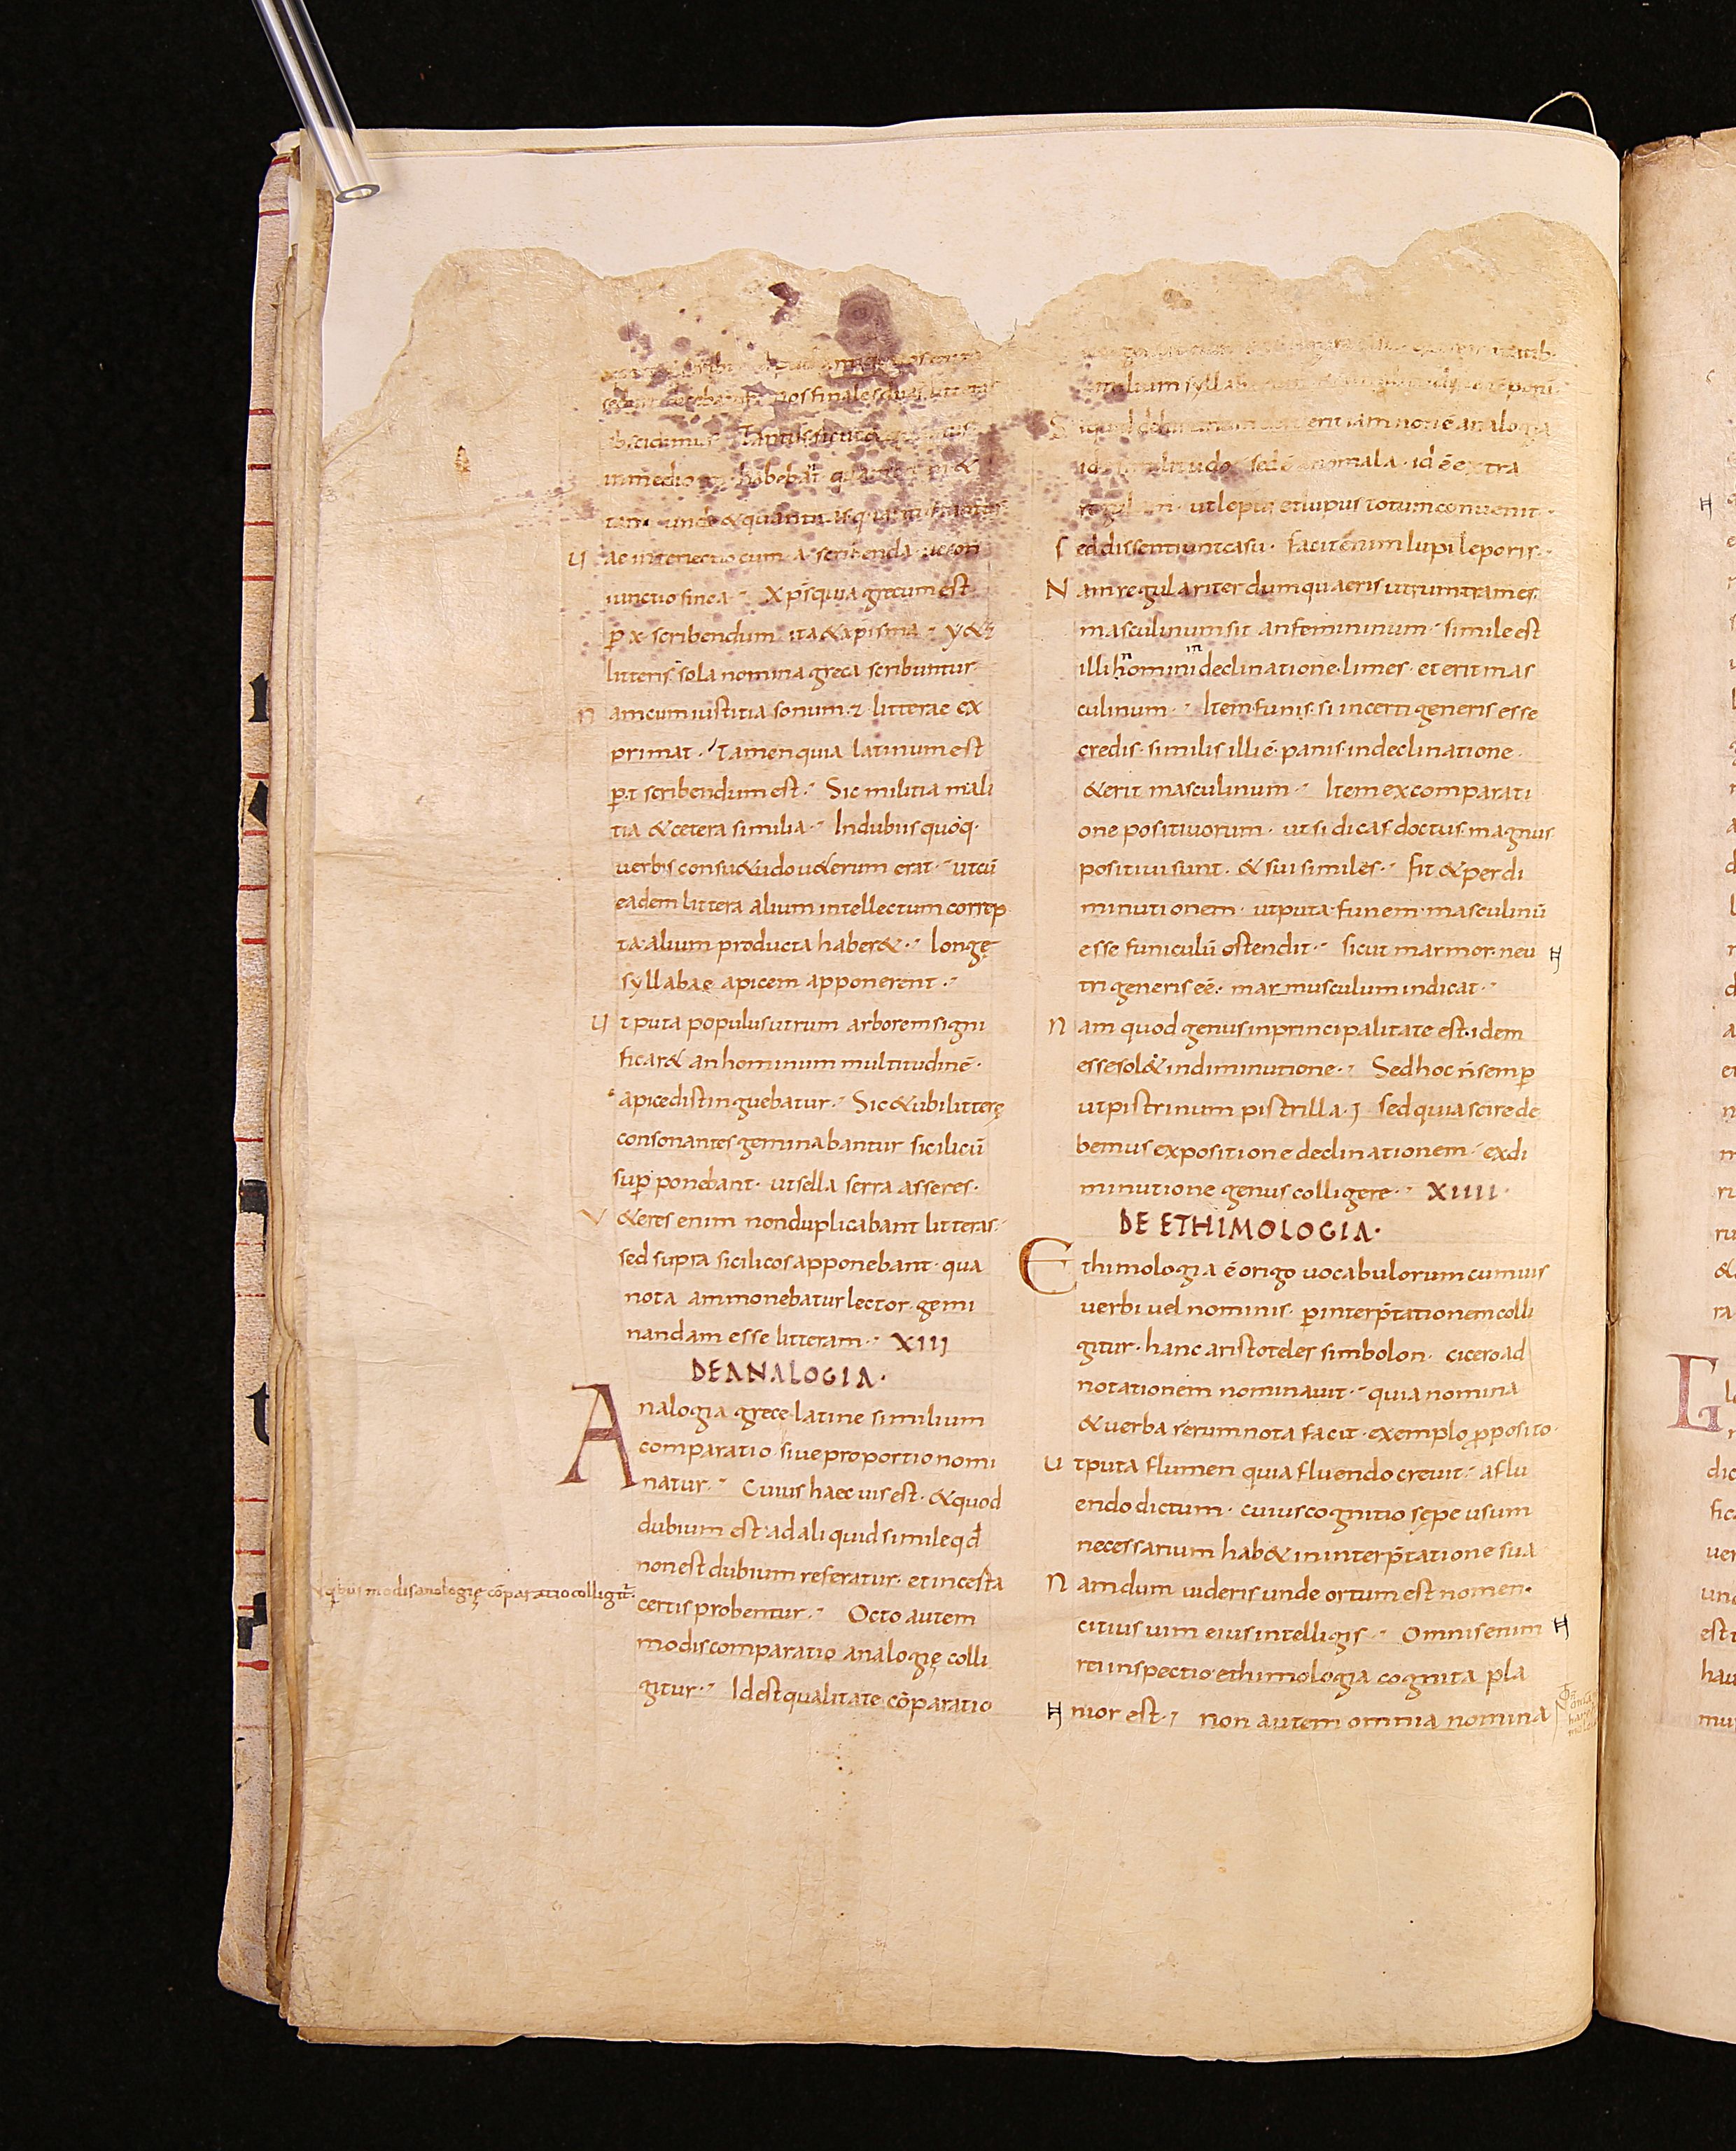 nos finales duas litteras
abscidimus
in medio habebat
tam unde & quanta
U ae interiectio cum a scribenda ue con
iunctio sine a · Xp̄s quia grecum est
p̱ x scribendum ita & xp̄isma · y & z
litteris sola nomina greca scribuntur
N am cum iustitia sonum z litterae ex
primat · Tamen quia latinum est
p̱ t scribendum est · Sic militia mali
tia & cetera similia · In dubiis quoq·
uerbis consu&udo u&erum erat · ut cū
eadem littera alium intellectum correp
ta alium producta haber& · longę
syllabae apicem apponerent ·
U t puta populus utrum arborem signi
ficar& an hominum multitudinē ·
apice distinguebatur · Sic & ubi litterę
consonantes geminabantur sicilicū
sup̱ponebant · ut sella serra asseres ·
V &eres enim non duplicabant litteras ·
sed supra sicilicos apponebant · qua
nota ammonebatur lector gemi
nandam esse litteram · XIII
DE ANALOGIA ·
A nalogia grece latine similium
comparatio siue proportio nomi
natur · Cuius haec uis est · & quod
dubium est ad aliquid simile qd̄
non est dubium referatur · et incerta
certis probentur · Octo autem
modis comparatio analogię colli
gitur · Id est qualitate cōparatio
quibus modis analogię cōparatio colligit̄
malium syllab
S
id similitudo sed ē anomala · id ē extra
regulam · ut lepus et lupus totum conuenit ·
S ed dissentiunt casu · facit enim lupi leporis ·
N am regulariter dum quaeris utrum trames
masculinum sit an femininum · simile est
illi homini declinatione limes · et erit mas
culinum · Item funis si incerti generis esse
credis · similis illi ē panis in declinatione ·
& erit masculinum · Item ex comparati
one positiuorum · ut si dicas doctus magnus
positiui sunt · & sui similes · fit & per di
minutionem · ut puta funem masculinū
esse funiculū ostendit · sicut marmor neu
tri generis eē · marmusculum indicat ·
N am quod genus in principalitate est idem
esse sol& in diminutione · Sed hoc n̄ semp̱
ut pistrinum pistrilla · sed quia scire de
bemus expositione declinationem · ex di
minutione genus colligere · XIIII ·
DE ETHIMOLOGIA ·
E thimologia ē origo uocabulorum cum uis
uerbi uel nominis · p̱ interp̄tationem colli
gitur · hanc aristoteles simbolon · cicero ad
notationem nominauit · quia nomina
& uerba rerum nota facit · exemplo p̱posito ·
U t puta flumen quia fluendo creuit · a flu
endo dictum · cuius cognitio sępe usum
necessarium hab& in interp̄tatione sua
N am dum uideris unde ortum est nomen ·
citius uim eius intelligis · Omnis enim
rei inspectio ethimologia cognita pla
nior est · non autem omnia nomina